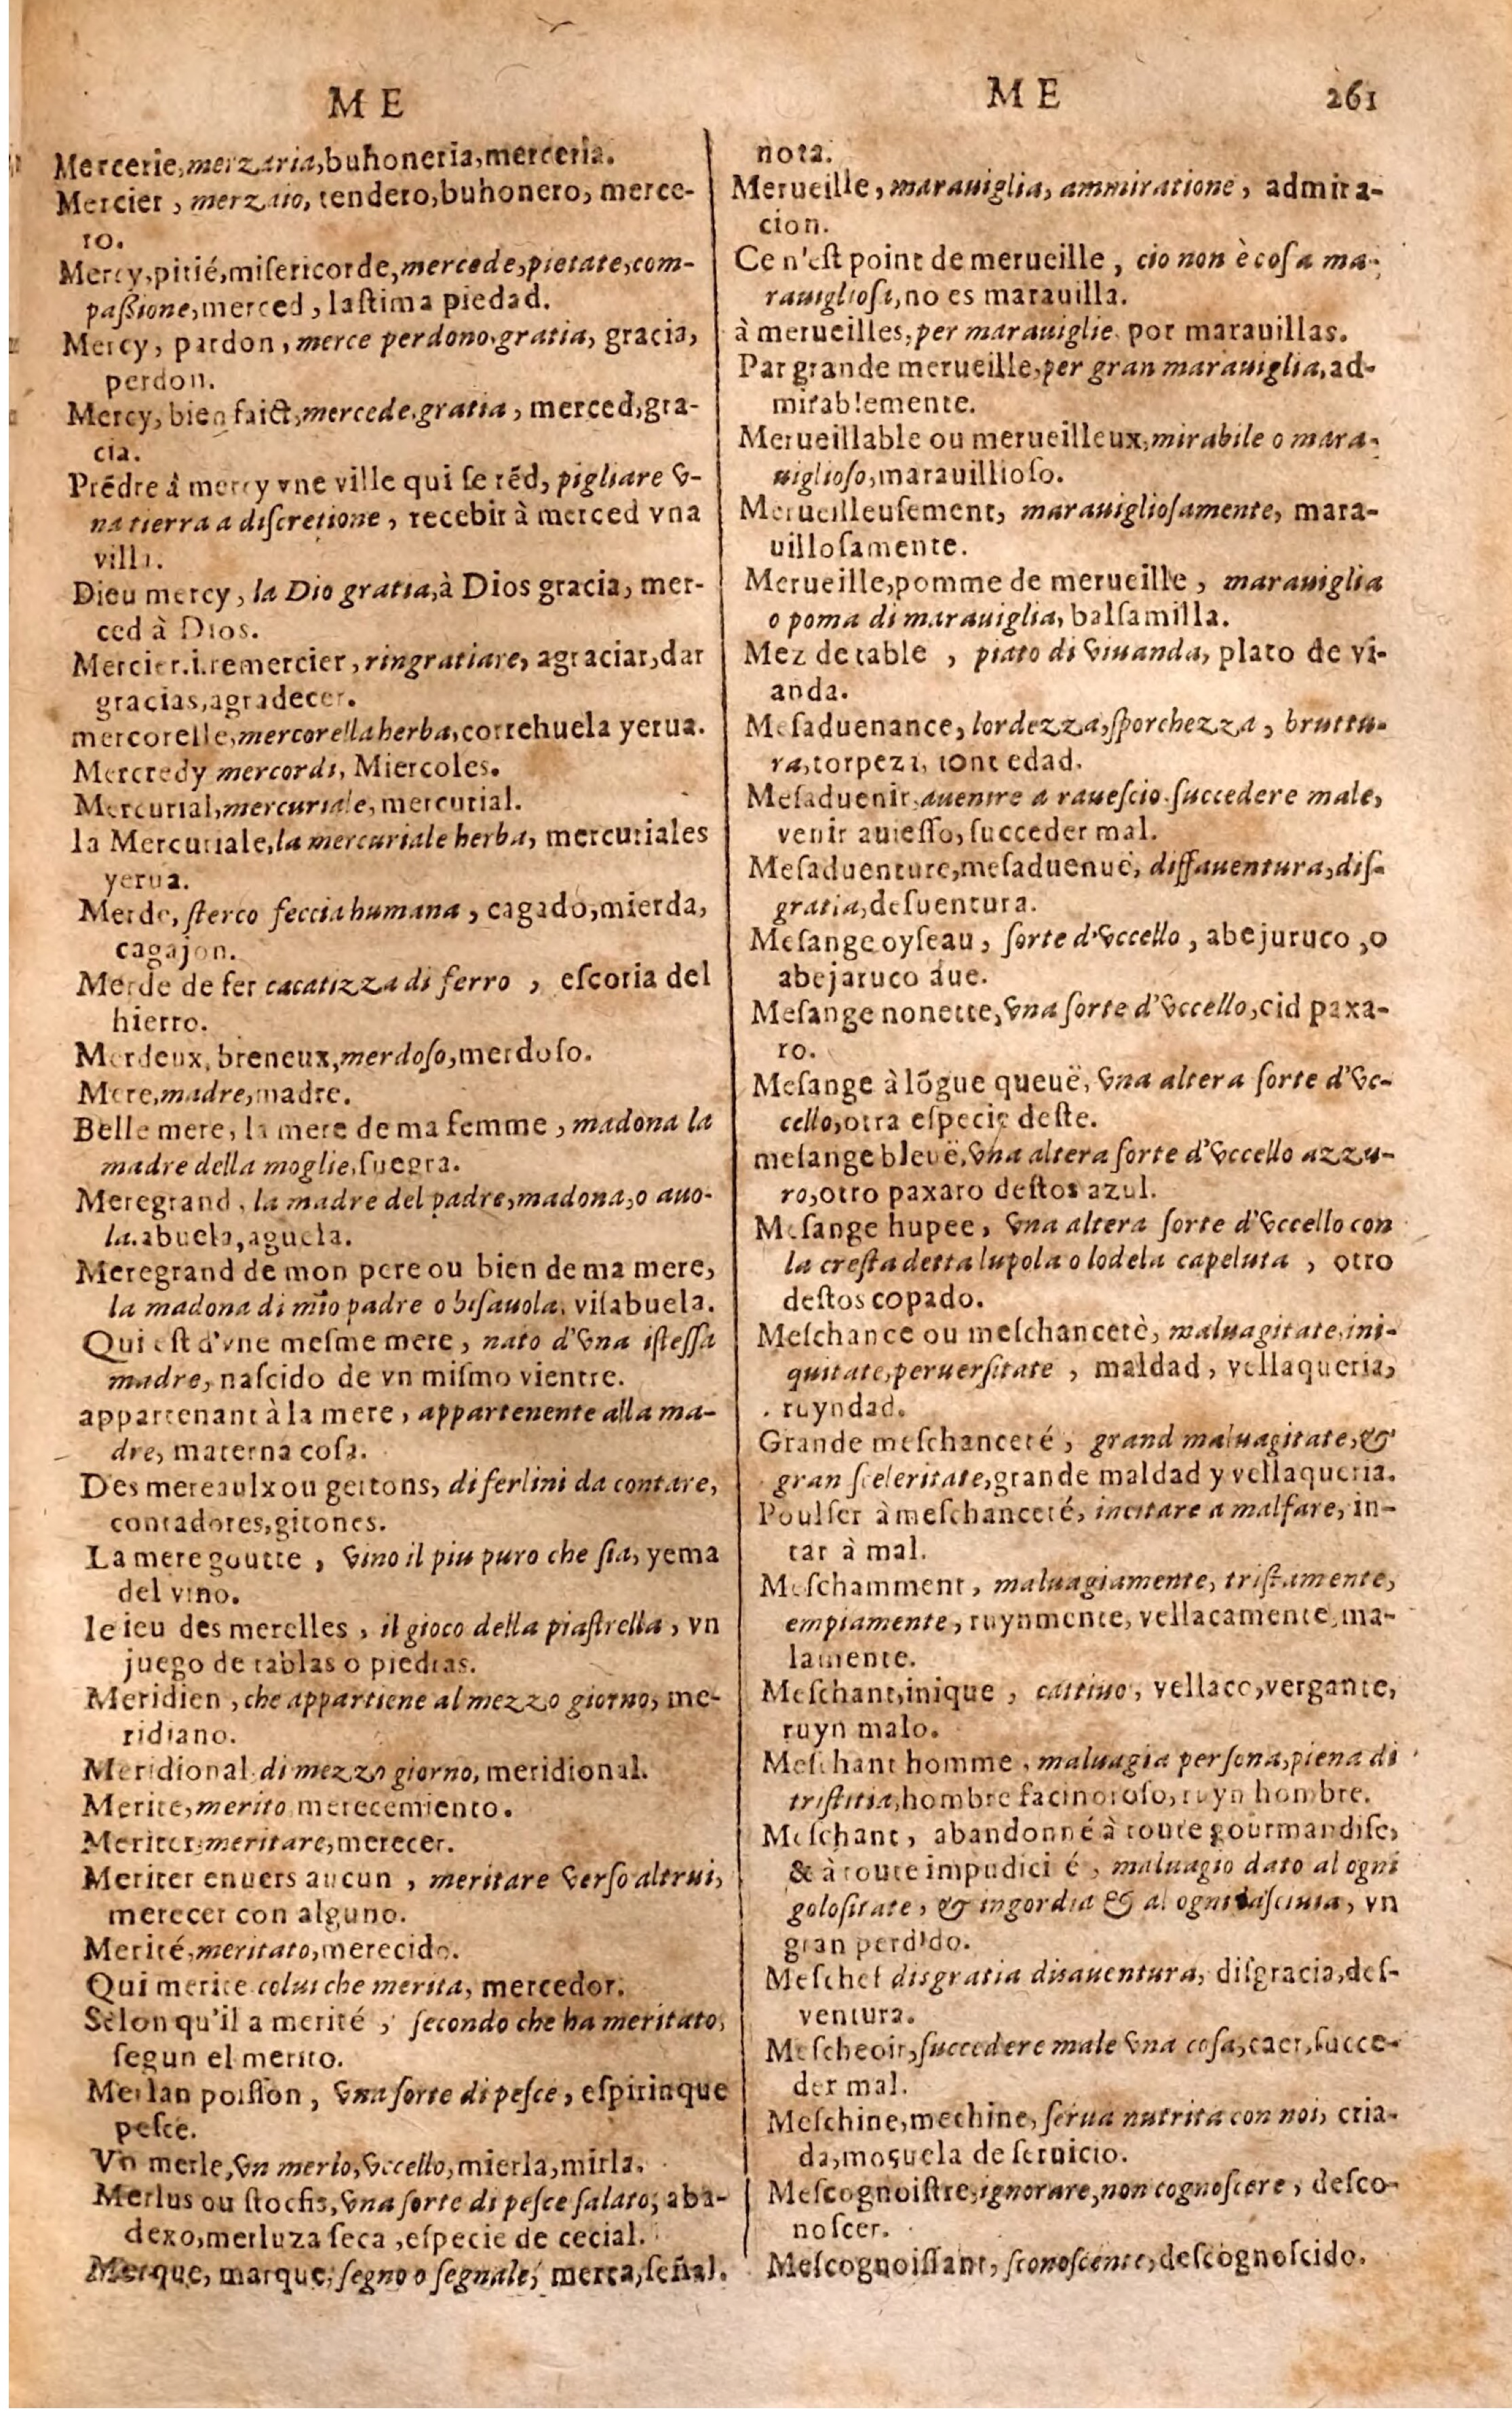 M E
Mercerie, merzaria, buhoneria, merceria.
Mercier, merzaio, tendero, buhonero, merce-
ro.
Mercy, pitié, misericorde, mercede, pietate, com-
paßione, merced, lastima piedad.
Mercy, pardon, merce perdono, gratia, gracia,
perdon.
Mercy, bien faict, mercede, gratia, merced, gra-
cia.
Prẽdre à mercy vne ville qui se rẽd, pigliare v-
na tierra a discretione, recebir à merced vna
villa.
Dieu mercy, la Dio gratia, à Dios gracia, mer-
ced à Dios.
Mercier .i. remercier, ringratiare, agraciar, dar
gracias, agradecer.
mercorelle, mercorella herba, correhuela yerua.
Mercredy mercordi, Miercoles.
Mercurial, mercuriale, mercurial.
la Mercuriale, la mercuriale herba, mercuriales
yerua.
Merde, sterco feccia humana, cagado, mierda,
cagajon.
Merde de fer cacatizza di ferro, escoria del
hierro.
Merdeux, breneux, merdoso, merdoso.
Mere, madre, madre.
Belle mere, la mere de ma femme, madona la
madre della moglie, suegra.
Meregrand, la madre del padre, madona, o auo-
la. abuela, aguela.
Meregrand de mon pere ou bien de ma mere,
la madona di mio padre o bisauola, visabuela.
Qui est d'vne mesme mere, nato d'vna istessa
madre, nascido de vn mismo vientre.
appartenant à la mere, appartenente alla ma-
dre, materna cosa.
Des mereaulx ou gettons, di ferlini da contare,
contadores, gitones.
La mere goutte, vino il piu puro che sia, yema
del vino.
le ieu des merelles, il gioco della piastrella, vn
juego de tablas o piedras.
Meridien, che appartiene al mezzo giorno, me-
ridiano.
Meridional di mezzo giorno, meridional.
Merite, merito merecemiento.
Meriter, meritare, merecer.
Meriter enuers aucun, meritare verso altrui,
merecer con alguno.
Merité, meritato, merecido.
Qui merite colui che merita, mercedor.
Selon qu'il a merité, secondo che ha meritato,
segun el merito.
Merlan poisson, vna sorte di pesce, espirinque
pesce.
Vn merle, vn merlo, vccello, mierla, mirla.
Merlus ou stocfis, vna sorte di pesce salato, aba-
dexo, merluza seca, especie de cecial.
Merque, marque, segno o segnale, merca, señal.
M E 261
nota.
Merueille, marauiglia, ammiratione, admira-
cion.
Ce n'est point de merueille, cio non è cosa ma-
rauigliosa, no es marauilla.
à merueilles, per marauiglie. por marauillas.
Par grande merueille, per gran marauiglia, ad-
mirablemente.
Merueillable ou merueilleux, mirabile o mara-
uiglioso, marauillioso.
Merueilleusement, marauigliosamente, mara-
uillosamente.
Merueille, pomme de merueille, marauiglia
o poma di marauiglia, balsamilla.
Mez de table, piato di viuanda, plato de vi-
anda.
Mesaduenance, lordezza, sporchezza, bruttu-
ra, torpeza, edad.
Mesaduenir, auenire a rauescio. succedere male,
venir auiesso, succeder mal.
Mesaduenture, mesaduenuë, disauentura, dis-
gratia, desuentura.
Mesange oyseau, sorte d'vccello, abejuruco, o
abejaruco aue.
Mesange nonette, vna sorte d'vccello, cid paxa-
ro.
Mesange à lõgue queuë, vna altera sorte d'vc-
cello, otra especie deste.
mesange bleuë, vna altera sorte d'vccello azzu-
ro, otro paxaro destos azul.
Mesange hupee, vna altera sorte d'vccello con
la cresta detta lupola o lodela capeluta, otro
destos copado.
Meschance ou meschancetè, maluagitate, ini-
quitate, peruersitate, maldad, vellaqueria,
ruyndad.
Grande meschanceté, grand maluagitate, &
gran sceleritate, grande maldad y vellaqueria.
Poulser à meschanceté, incitare a malfare, in-
tar à mal.
Meschamment, maluagiamente, tristamente,
empiamente, ruynmente, vellacamente, ma-
lamente.
Meschant, inique, cattiuo, vellaco, vergante,
ruyn malo.
Meschant homme, maluagia persona, piena di
tristitia, hombre facinoroso, ruyn hombre.
Meschant, abandonné à toute gourmandise,
& à toute impudicité, maluagio dato al ogni
golositate, & ingordia & al ogni lasciuia, vn
gran perdido.
Meschef disgratia disauentura, disgracia, des-
ventura.
Mescheoir, succedere male vna cosa, caer, succe-
der mal.
Meschine, mechine, serua nutrita con noi, cria-
da, moçuela de seruicio.
Mescognoistre, ignorare, non cognoscere, desco-
noscer.
Mescognoissant, sconoscente, descognoscido.